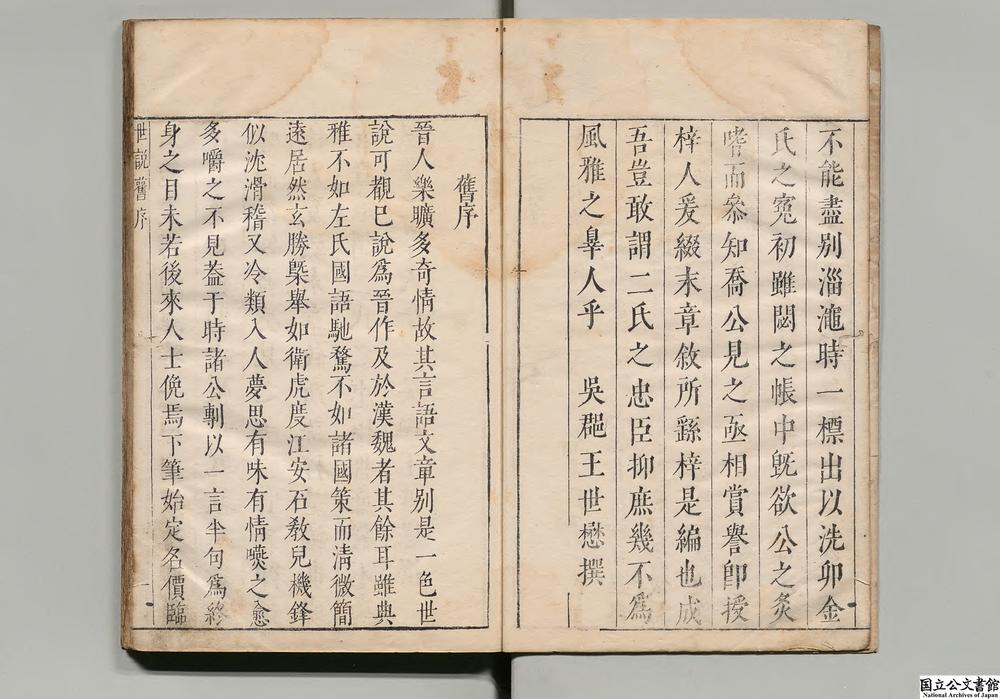 不能盡別淄澠時一標出以洗卯金
氏之寃初雖閟之帳中旣欲公之炙
嗜而叅知喬公見之亟相賞譽卽授
梓人爰綴末章敘所繇梓是編也成
吾豈敢謂二氏之忠臣抑庶幾不爲
風雅之辠人乎　吳郡王世懋撰
舊序
晉人樂曠多奇情故其言語文章別是一色世
說可覩已說爲晉作及於漢魏者其餘耳雖典
雅不如左氏國語馳騖不如諸國策而淸微簡
遠居然玄勝槩舉如衛虎度江安石教兒機鋒
似沈滑稽又冷類入人夢思有味有情嚥之愈
多嚼之不見葢于時諸公剸以一言半句爲終
身之目未若後來人士俛焉下筆始定名價臨
世說舊序
一
国立公文書館
National Archives of Japan